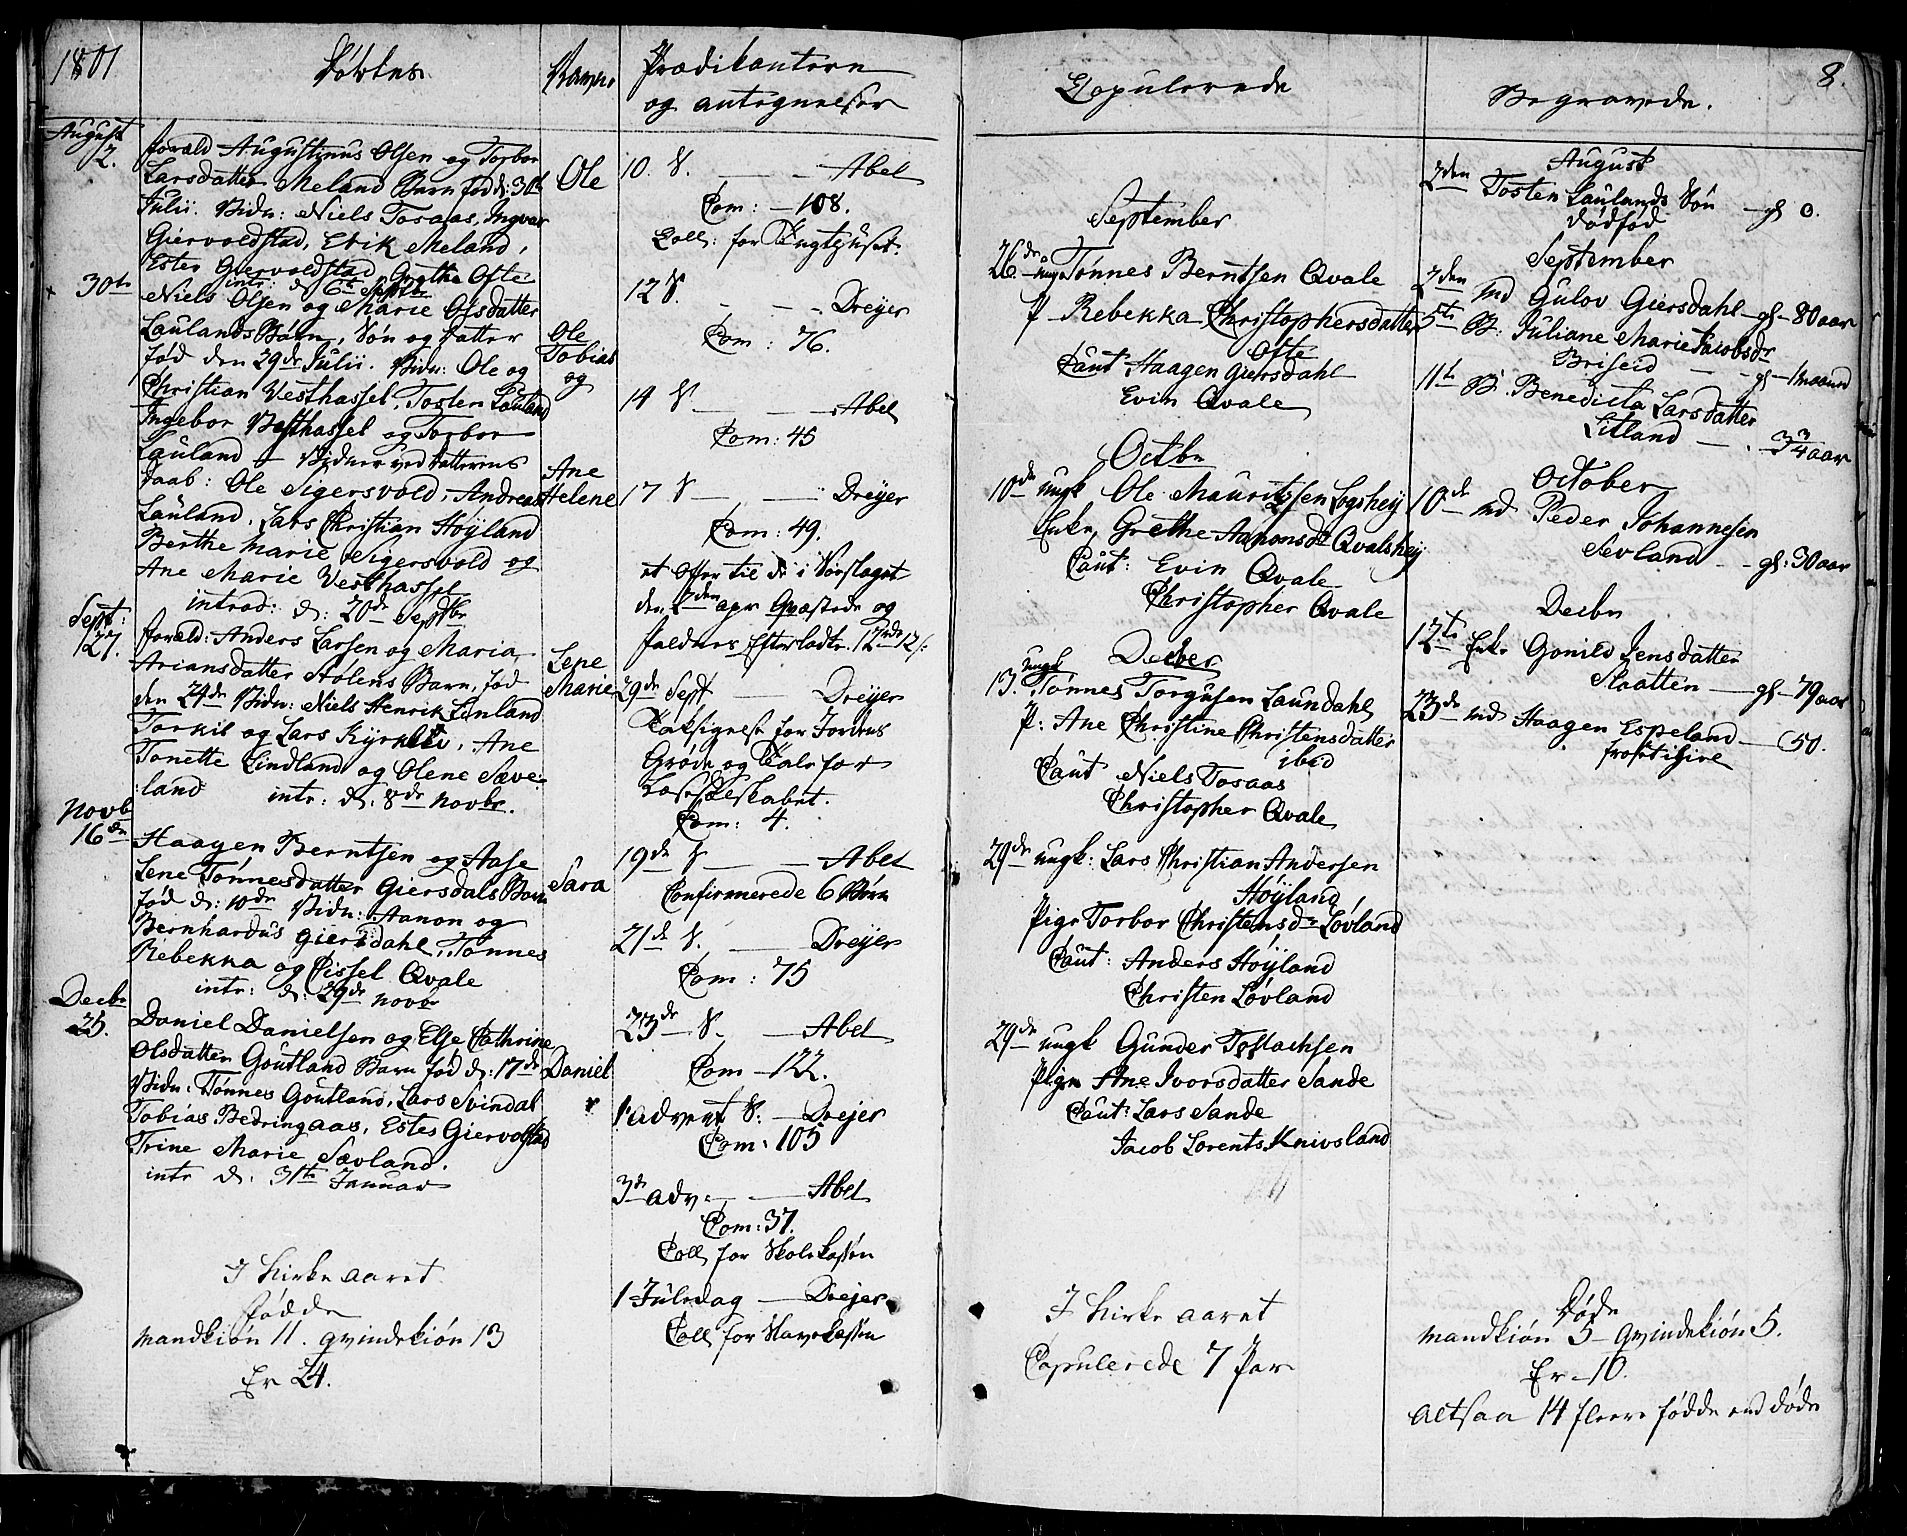 1801
Døbtes
Navne
Prædikanterne
og antegnelser
August
2.
foræld Augustinus Olsen og Torbor
Larsdatter Meland Barn fød d: 30te
Julii. Vidn: Niels Tosaas, Ingvar
Giervoldstad, Erik Meland,
Ester Giervoldstad Grethe Ofte
intr: d 6te Septbr
Ole
30te
Niels Olsen og Marie Olsdatter
Laulands Børn, Søn og Datter
fød den 29de Julii. Vidn: Ole og
Christian Vesthassel, Tosten Lauland
Ingebor Vesthassel og Torbor
Lauland — Vidner ved datterens
daab: Ole Sigersvold, Andreas
Lauland, Lars Christian Høyland
Berthe Marie Sigersvold og
Ane Marie Vesthassel
introd: d: 20de Septbr
Ole
Tobias
og
Ane
Helene
Sept:
27.
foræld: Anders Larsen og Maria
Ariansdatter Stølens Barn, fød
den 24de Vidn: Niels Henrik Linland
Torkil og Lars Kyrklev, Ane
Tonette Lindland og Olene Sæve-
land intr: d: 8de Novbr.
Lene
Marie
Novb
16de
Haagen Berntsen og Aase
Lene Tønnesdatter Giersdals Barn
fød d: 10de Vidn: Aanon og
Bernhardus Giersdahl, Tønnes
Rebekka og Cissel Qvale
intr: d: 29de Novbr
Sara
Decbr
25.
Daniel Danielsen og Else Cathrine
Olsdatter Goutland Barn fød d: 17de
Vidn: Tønnes Goutland, Lars Svindal
Tobias Bedringaas, Ester Giervolstad
Trine Marie Sævland.
intr d. 31te Januar
Daniel
I Kirkeaaret
fødde
Mandkiøn 11. Qvindekiøn 13
Er 24.
10. S. — — Abel
Com: — 108.
Coll: for Tugthuset.
12 S. — — Dreyer
Com: 76.
14 S — — Abel
Com: 45
17 S — — Dreyer
Com: 49.
et offer til de i Slaget
den 2den apr Qvæstede og
Faldnes Efterladte. 12rd 12 s.
29de Sept — Dreyer
Taksigelse for Jordens
Grøde og Tale for
Com: 4.
19de S — — Abel
Confirmerede 6 Børn
21de S. — Dreyer
Com: 75
23de S. — Abel
Com — 122.
1 Advent S. — Drejer
Com: 105
3de adv. — Abel
Com: 37.
Coll for Skolekassen
1 Juledag — Drejer
Coll for Slavekassen
8.
Copulerede
September
26de ungk Tønnes Berntsen Qvale
P. Rebekka Christophersdatter
Ofte
Caut Haagen Giersdahl
Evin Qvale
Octbr
10de ungk Ole Mauritzsen Logshey
Enke, Grethe Aanonsdr Qvalshey
Caut: Evin Qvale
Christopher Qvale
Decber
13. ungk Tønnes Torgusen Laundahl
P: Ane Christine Christensdatter
ibid
Caut Niels Tosaas
Christopher Qvale
29de ungk: Lars Christian Andersen
Høyland
Pige Torbor Christensdr Løvland
Caut: Anders Høyland
Christen Løvland
29de ungk Gunder Tostachsen
Pige Ane Ivorsdatter Sande
Caut: Lars Sande
Jacob Lorents Knivsland
I Kirkeaaret
Copulerede 7 Par
Begravede.
August
2den Tosten Laulands Søn — gl 0.
dødfød
September
2den Md Gulov Giersdahl — gl — 80 aar
5te B: Juliane Marie Jacobsdr
Briseid — gl — 1 maaned
11te B. Benedicta Larsdatter
Litland — 3 3/4 aar
October
10de Md Peder Johannesen
Sevland — gl: 30 aar
Decbr
12te Enke Gonild Jensdatter
Slaatten — gl — 79 aar
23de Md Haagen Espeland — 50.
Døde
Mandkiøn 5 — Qvindekiøn 5.
Er — 10.
Altsaa 14 fleere fødde end døde